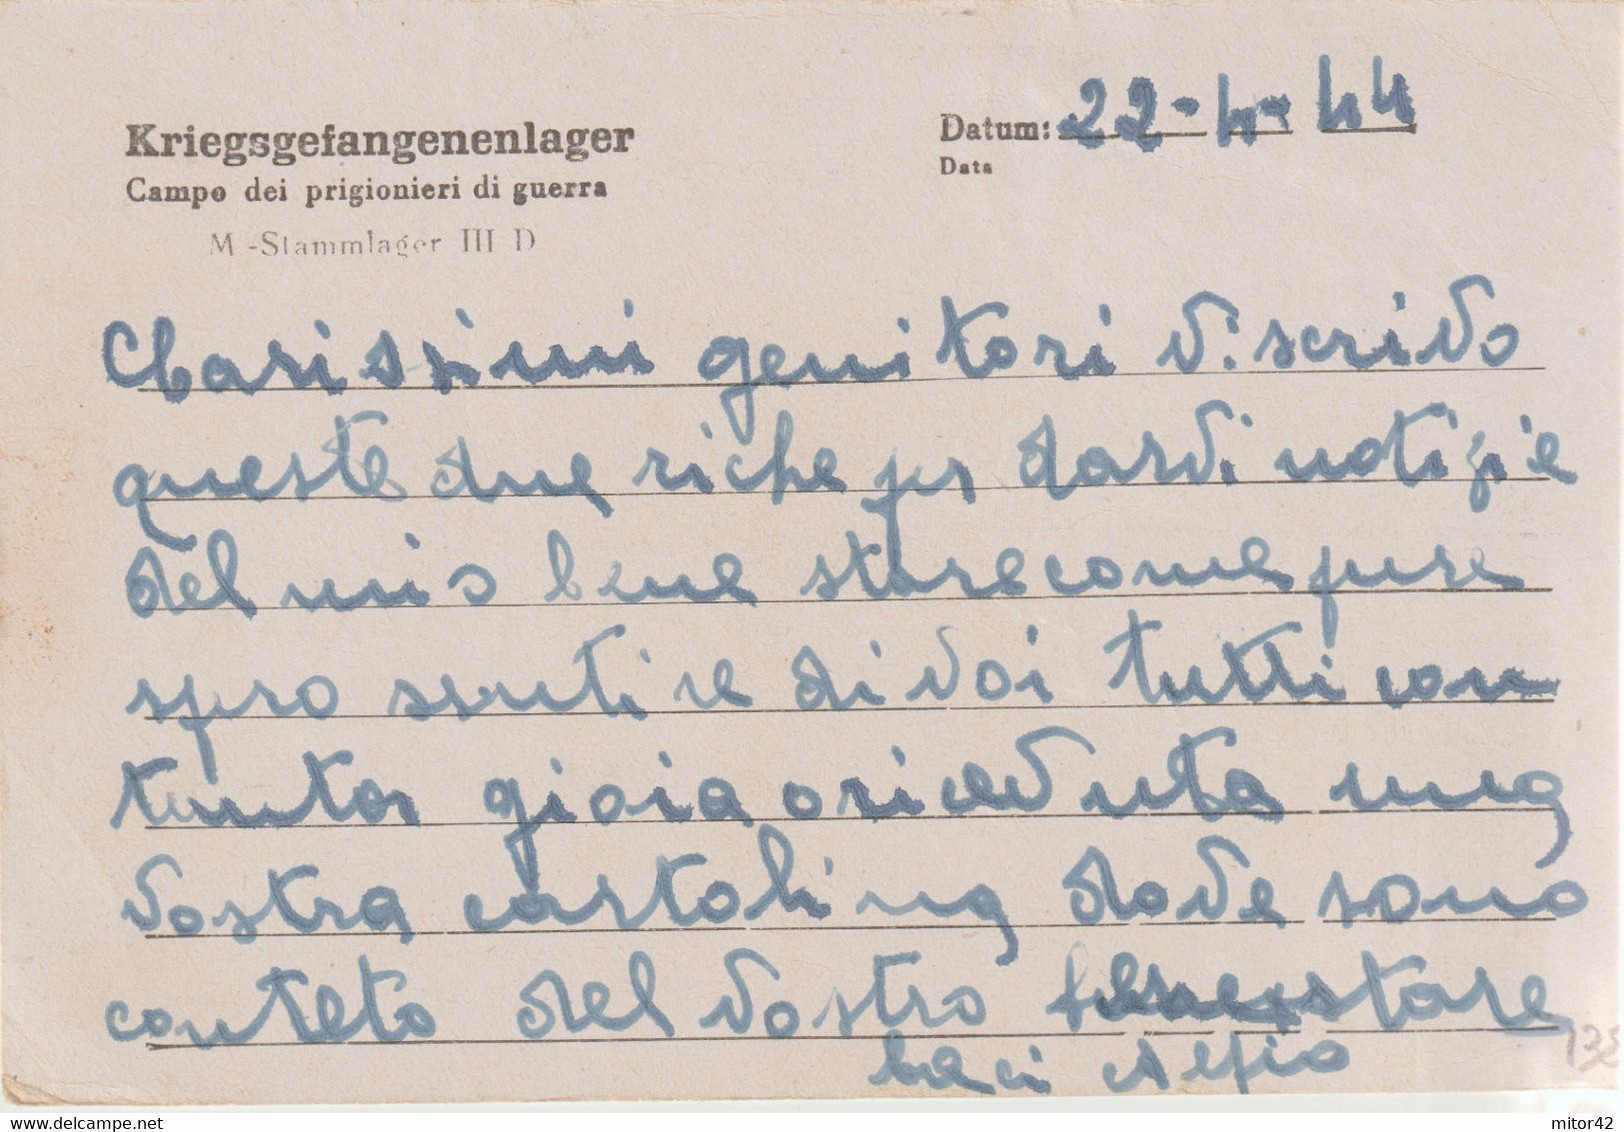 Kriegsgefangenenlager
Campo dei prigionieri di guerra
M.-Stammlager III D
Datum: 22-4-44
Data
Charissimi genitori vi scrivo
queste due riche per dardi notizie
del mio bene stare come pure
spro sentire di voi tutti con
tanta gioia o ricevuta una
vostra cartolina dove sono
conteto del vostro bene stare
baci Alfio
138
www.delcampe.net
mitor42